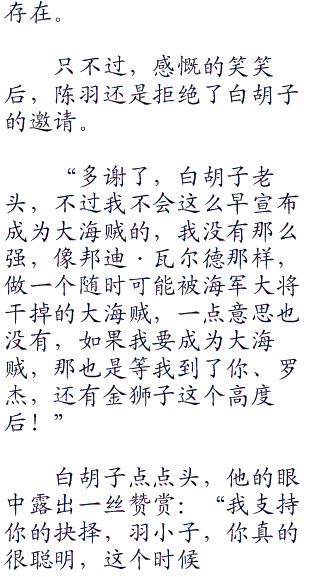 存在。
只不过，感慨的笑笑
后，陈羽还是拒绝了白胡子
的邀请。
“多谢了，白胡子老
头，不过我不会这么早宣布
成为大海贼的，我没有那么
强，像邦迪·瓦尔德那样，
做一个随时可能被海军大将
干掉的大海贼，一点意思也
没有，如果我要成为大海
贼，那也是等我到了你、罗
杰，还有金狮子这个高度
后！”
白胡子点点头，他的眼
中露出一丝赞赏：“我支持
你的抉择，羽小子，你真的
很聪明，这个时候